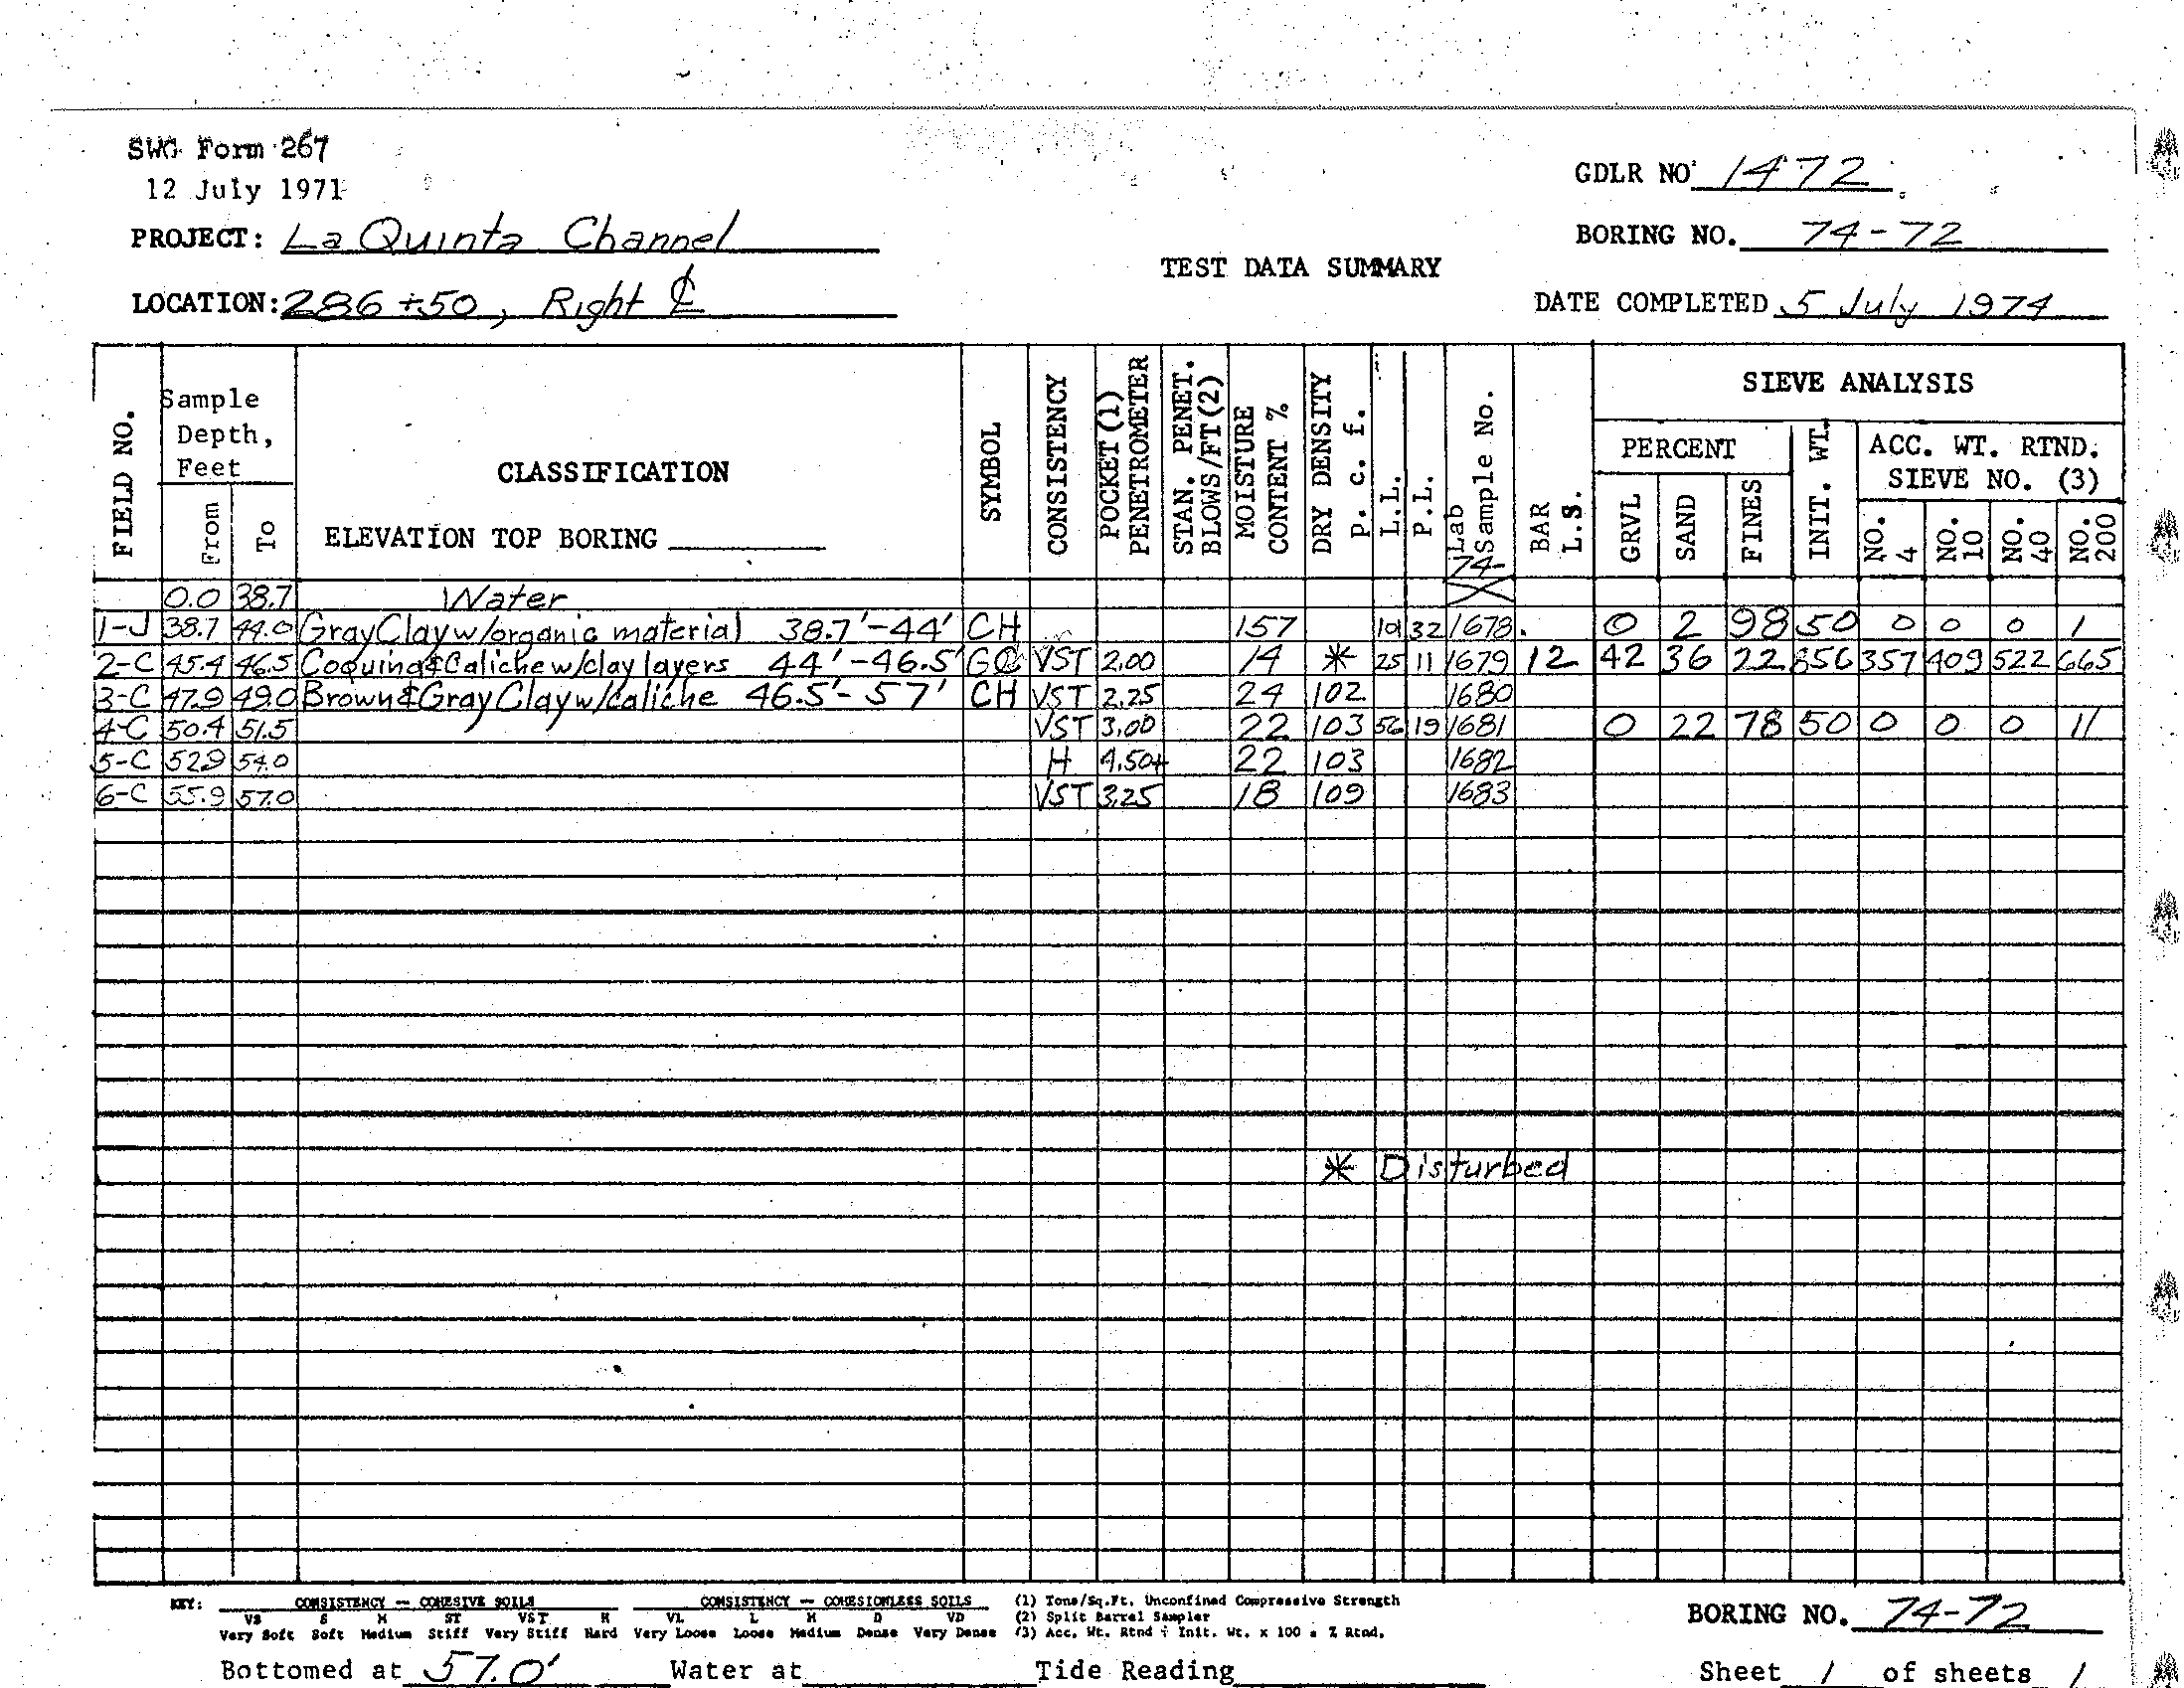 SWG Form 267
12 July 1971
GDLR NO. 1472
PROJECT: La Quinta Channel
BORING NO. 74-72
TEST DATA SUMMARY
LOCATION: 286+50, Right ℄
DATE COMPLETED 5 July 1974
FIELD NO.
Sample Depth, Feet
From
To
CLASSIFICATION
ELEVATION TOP BORING
SYMBOL
CONSISTENCY
POCKET (1) PENETROMETER
STAN. PENET. BLOWS/FT (2)
MOISTURE CONTENT %
DRY DENSITY P. c. f.
L.L.
P.L.
Lab Sample No.
74-
BAR L.S.
SIEVE ANALYSIS
PERCENT
GRVL
SAND
FINES
INIT. WT.
ACC. WT. RTND.
SIEVE NO. (3)
NO. 4
NO. 10
NO. 40
NO. 200
0.0 38.7 Water
1-J 38.7 44.0 Gray Clay w/organic material 38.7'-44' CH 157 101 32 1678 0 2 98 50 0 0 0 1
2-C 45.4 46.5 Coquina & Caliche w/clay layers 44'-46.5' GC VST 2.00 14 * 25 11 1679 12 42 36 22 856 357 409 522 665
3-C 47.9 49.0 Brown & Gray Clay w/caliche 46.5'-57' CH VST 2.25 24 102 1680
4-C 50.4 51.5 VST 3.00 22 103 56 19 1681 0 22 78 50 0 0 0 11
5-C 52.9 54.0 H 4.50+ 22 103 1682
6-C 55.9 57.0 VST 3.25 18 109 1683
* Disturbed
KEY: CONSISTENCY -- COHESIVE SOILS CONSISTENCY -- COHESIONLESS SOILS (1) Tons/Sq.Ft. Unconfined Compressive Strength
VS S M ST VST H VL L M D VD (2) Split Barrel Sampler
Very Soft Soft Medium Stiff Very Stiff Hard Very Loose Loose Medium Dense Very Dense (3) Acc. Wt. Rtnd ÷ Init. Wt. x 100 = % Rtnd.
BORING NO. 74-72
Bottomed at 57.0' Water at Tide Reading Sheet 1 of sheets 1